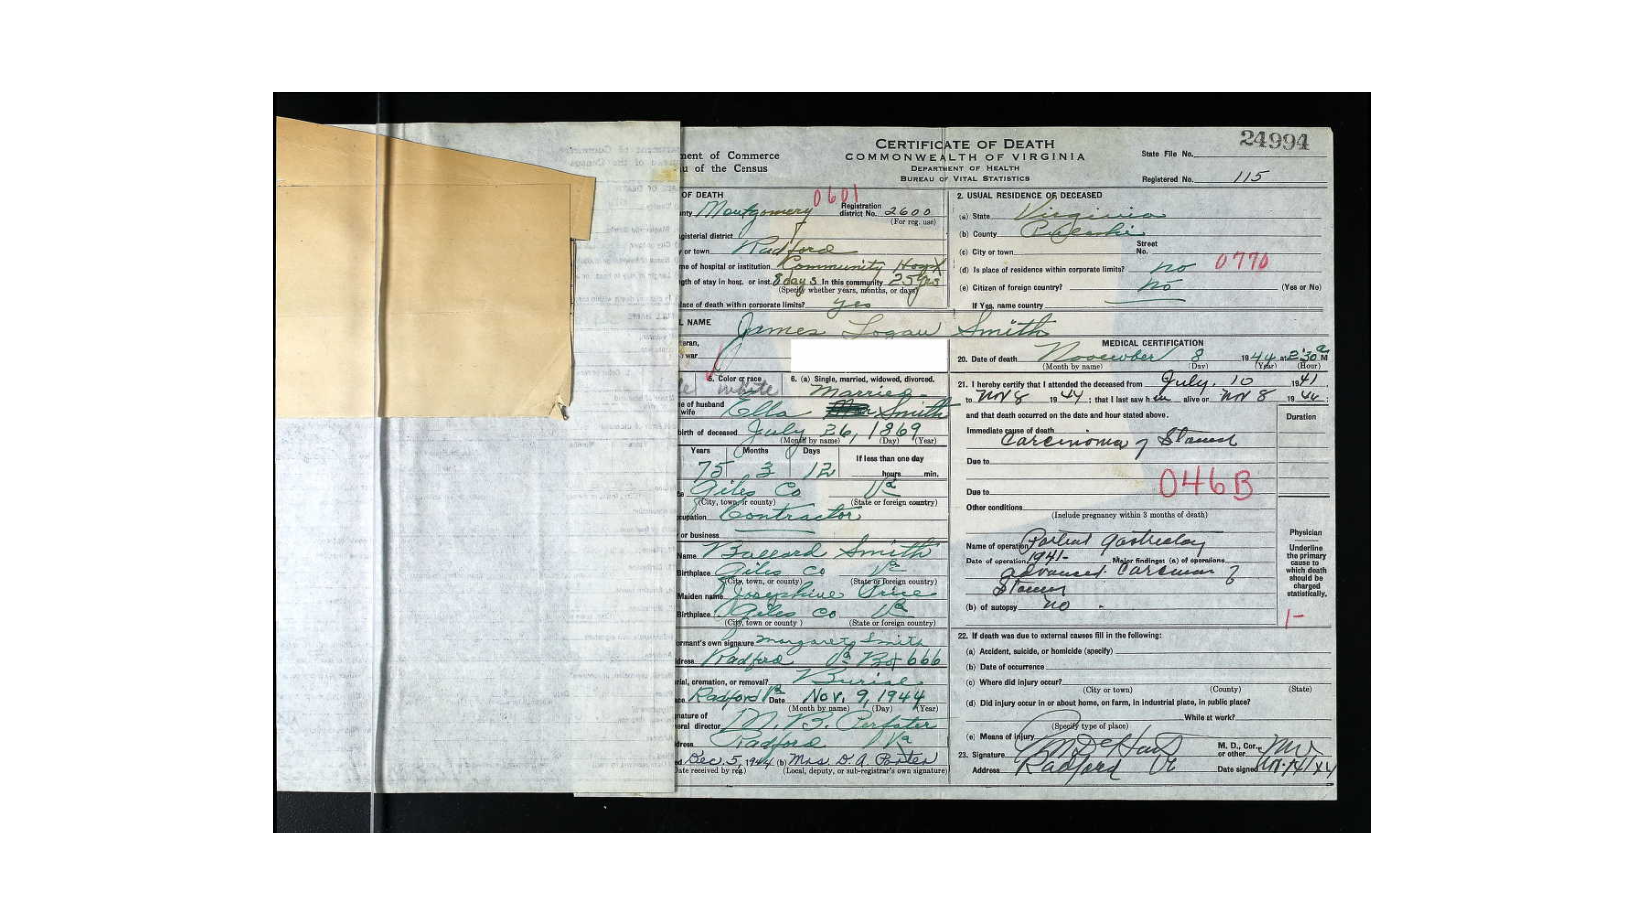 CERTIFICATE OF DEATH
COMMONWEALTH OF VIRGINIA
DEPARTMENT OF HEALTH
BUREAU OF VITAL STATISTICS
ment of Commerce
u of the Census
24994
State File No.
Registered No. 115
OF DEATH
0601
nty Montgomery Registration district No. 2600
(For reg. use)
gisterial district
or town Radford
me of hospital or institution Community Hosp
gth of stay in hosp. or inst. 8 days In this community 25 yrs
(Specify whether years, months, or days)
lace of death within corporate limits? yes
2. USUAL RESIDENCE OF DECEASED
(a) State Virginia
(b) County Pulaski
(c) City or town Street No.
(d) Is place of residence within corporate limits? no 0770
(e) Citizen of foreign country? no (Yes or No)
If Yes, name country
L NAME James Logan Smith
teran,
war
5. Color or race white
6. (a) Single, married, widowed, divorced. Married
e of husband
wife Ella Smith
birth of deceased July 26, 1869
(Month by name) (Day) (Year)
Years Months Days If less than one day
75 3 12 hours min.
Giles Co Va
(City, town, or county) (State or foreign country)
cupation Contractor
or business
Name Ballard Smith
Birthplace Giles Co Va
(City, town, or county) (State or foreign country)
Maiden name Josephine Price
Birthplace Giles Co Va
(City, town or county) (State or foreign country)
ormant's own signature Margaret Smith
dress Radford Va Bx 666
ial, cremation, or removal? Burial
ce Radford Va Date Nov. 9, 1944
(Month by name) (Day) (Year)
nature of
eral director M. B.
dress Radford Va
d Dec. 5, 1944 (b) Mrs D. A. Porter
Date received by reg) (Local, deputy, or sub-registrar's own signature)
MEDICAL CERTIFICATION
20. Date of death November 8 1944 at 2:30 a M
(Month by name) (Day) (Year) (Hour)
21. I hereby certify that I attended the deceased from July 10 1941
to Nov 8 1944; that I last saw him alive on Nov 8 1944;
and that death occurred on the date and hour stated above.
Duration
Immediate cause of death
Carcinoma of
Due to
Due to 046B
Other conditions
(Include pregnancy within 3 months of death)
Name of operation
Date of operation 1941- Major findings: (a) of operations
advanced
(b) of autopsy no
Physician
Underline
the primary
cause to
which death
should be
charged
statistically.
1-
22. If death was due to external causes fill in the following:
(a) Accident, suicide, or homicide (specify)
(b) Date of occurrence
(c) Where did injury occur?
(City or town) (County) (State)
(d) Did injury occur in or about home, on farm, in industrial place, in public place?
While at work?
(Specify type of place)
(e) Means of injury
23. Signature M. D., Cor., or other
Address Radford Va Date signed